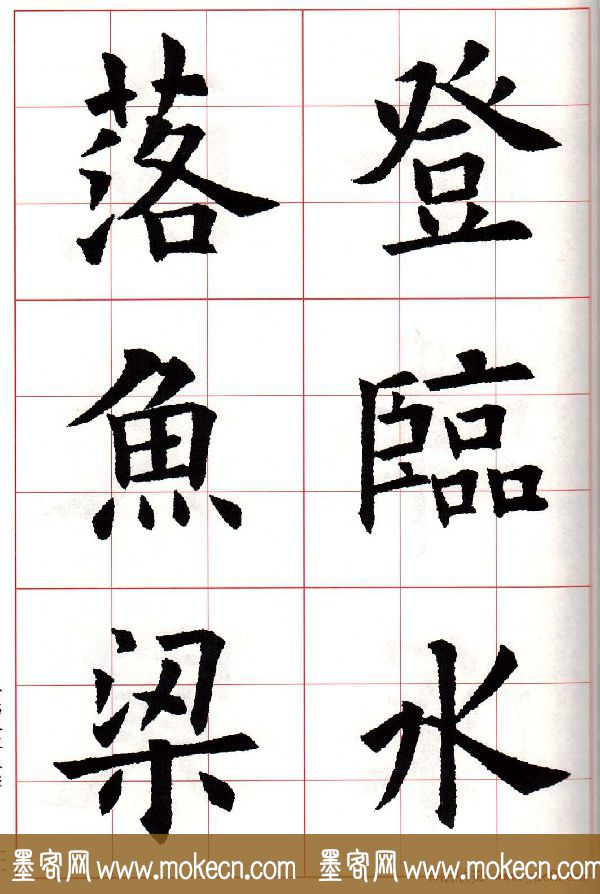 登臨水
落魚梁
墨客网 www.mokecn.com 墨客网 www.mokecn.com